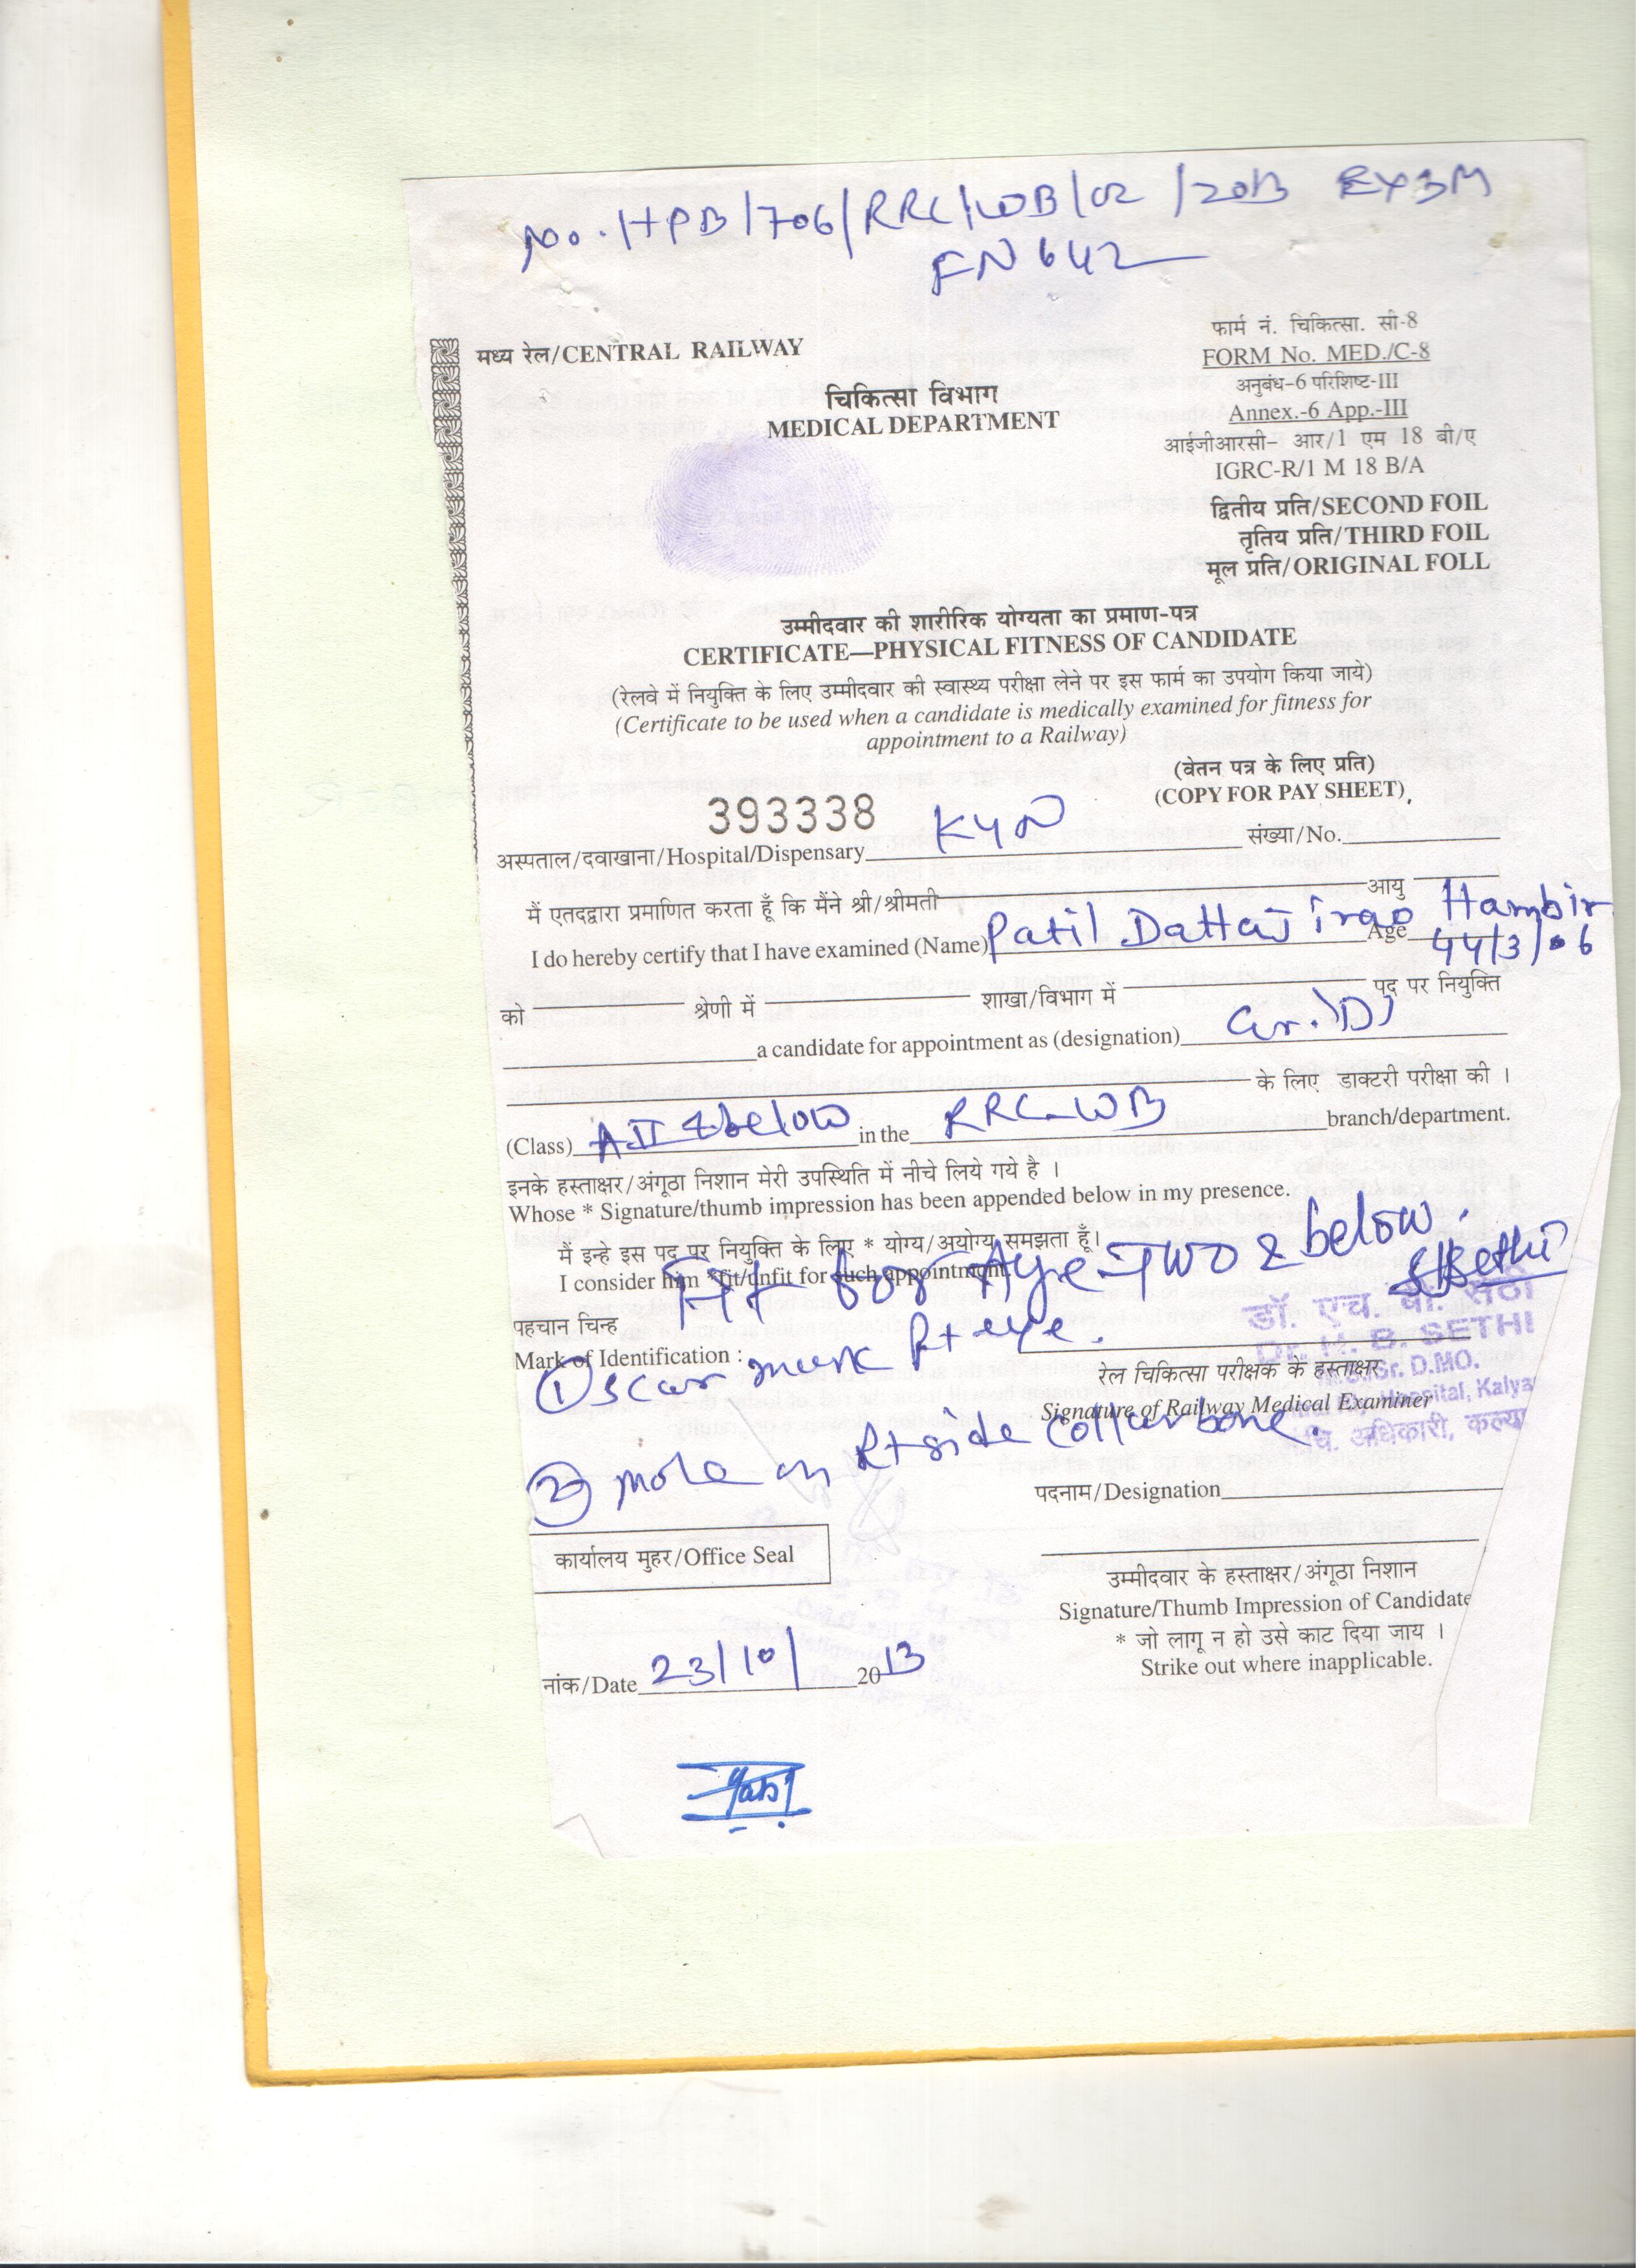 No. HPB/706/RRC/WB/02/2013 EXSM
FN 642
मध्य रेल/CENTRAL RAILWAY
फार्म नं. चिकित्सा. सी-8
FORM No. MED./C-8
चिकित्सा विभाग
अनुबंध-6 परिशिष्ट-III
MEDICAL DEPARTMENT
Annex.-6 App.-III
आईजीआरसी- आर/1 एम 18 बी/ए
IGRC-R/1 M 18 B/A
द्वितीय प्रति/SECOND FOIL
तृतिय प्रति/THIRD FOIL
मूल प्रति/ORIGINAL FOLL
उम्मीदवार की शारीरिक योग्यता का प्रमाण-पत्र
CERTIFICATE—PHYSICAL FITNESS OF CANDIDATE
(रेलवे में नियुक्ति के लिए उम्मीदवार की स्वास्थ्य परीक्षा लेने पर इस फार्म का उपयोग किया जाये)
(Certificate to be used when a candidate is medically examined for fitness for
appointment to a Railway)
(वेतन पत्र के लिए प्रति)
(COPY FOR PAY SHEET)
393338
अस्पताल/दवाखाना/Hospital/Dispensary KYN संख्या/No.
मैं एतदद्वारा प्रमाणित करता हूँ कि मैंने श्री/श्रीमती आयु
I do hereby certify that I have examined (Name) Patil Dattajirao Hambir Age 44/3/06
को श्रेणी में शाखा/विभाग में पद पर नियुक्ति
a candidate for appointment as (designation) Gr. 'D'
के लिए डाक्टरी परीक्षा की ।
(Class) A II & below in the RRC-WB branch/department.
इनके हस्ताक्षर/अंगूठा निशान मेरी उपस्थिति में नीचे लिये गये है ।
Whose * Signature/thumb impression has been appended below in my presence.
मैं इन्हे इस पद पर नियुक्ति के लिए * योग्य/अयोग्य समझता हूँ।
I consider him *fit/unfit for such appointment.
Fit for Aye-Two & below.
HBSethi
डॉ. एच. बी. सेठी
Dr. H. B. SETHI
Sr. D.MO.
Hospital, Kalya
चि. अधिकारी, कल्या
पहचान चिन्ह
Mark of Identification :
① scar mark Rt eye.
रेल चिकित्सा परीक्षक के हस्ताक्षर
Signature of Railway Medical Examiner
② mole on Rt side collar bone.
पदनाम/Designation
कार्यालय मुहर/Office Seal
उम्मीदवार के हस्ताक्षर/अंगूठा निशान
Signature/Thumb Impression of Candidate
* जो लागू न हो उसे काट दिया जाय ।
Strike out where inapplicable.
नांक/Date 23/10/ 2013